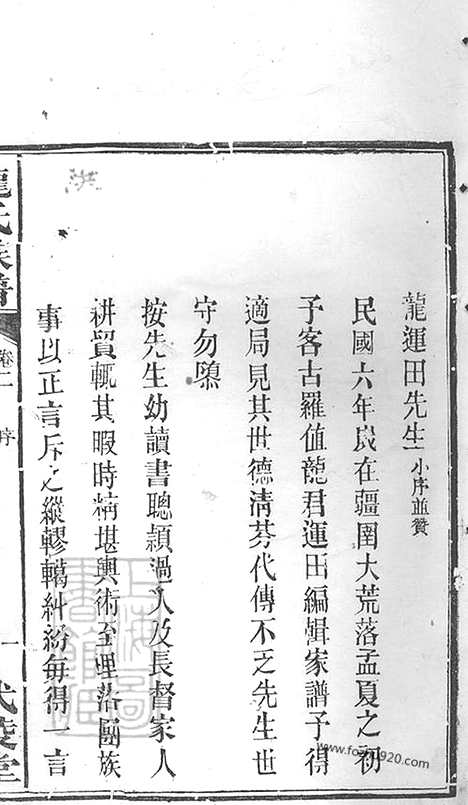 龍運田先生小序並贊
民國六年歲在疆圉大荒落孟夏之初
予客古羅值龍君運田編輯家譜予得
適局見其世德清芬代傳不乏先生世
守勿隳
按先生幼讀書聰穎過人及長督家人
耕貿輒其暇時精堪輿術至理落團族
事以正言斥之縱轇轕糾紛每得一言
龍氏族譜 卷二 序 一 武陵堂